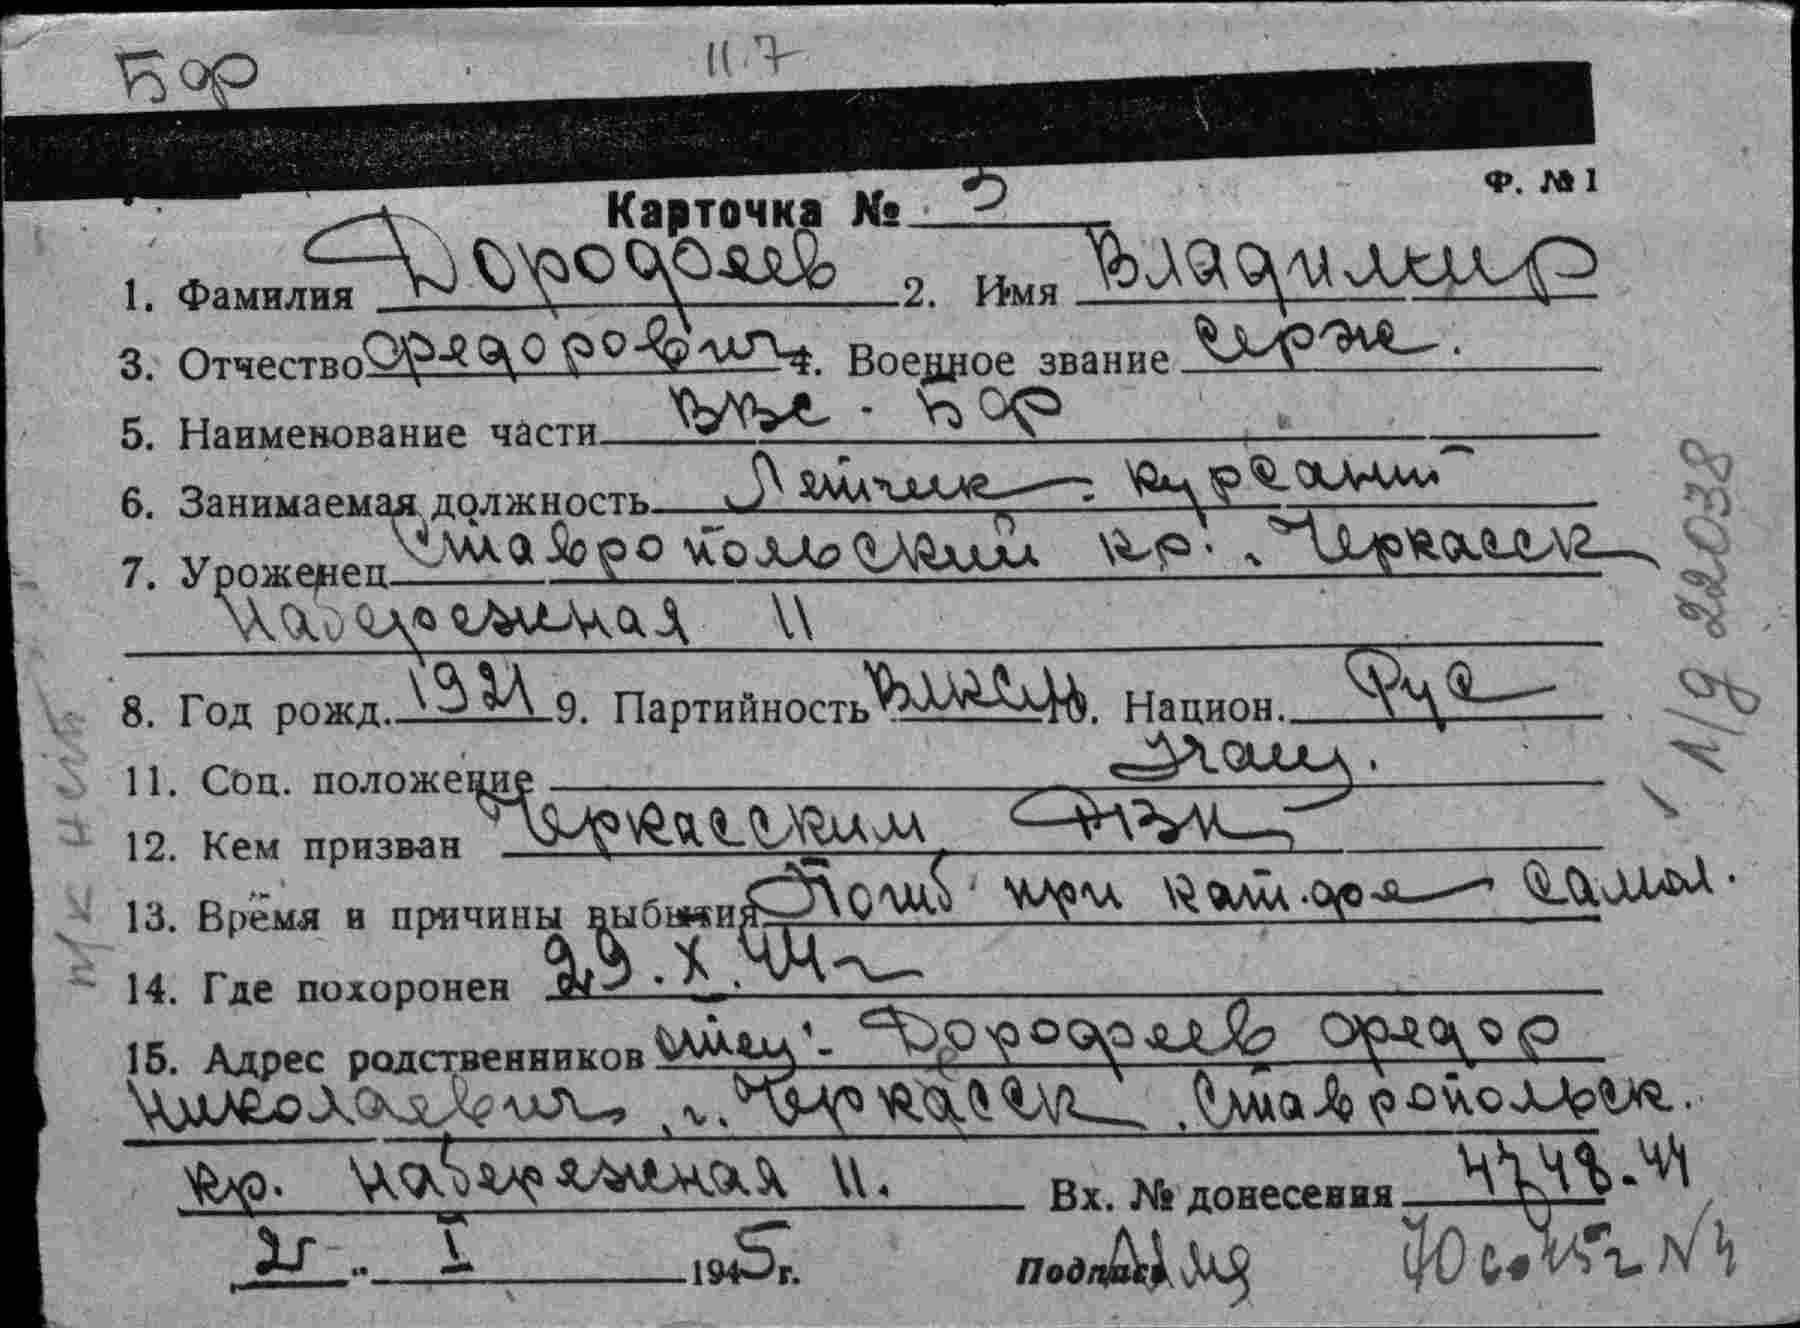 БФ
117
Ф. № 1
Карточка № 3
1. Фамилия Дородфеев 2. Имя Владимир
3. Отчество Федорович 4. Военное звание Серж.
5. Наименование части ВВС - БФ
6. Занимаемая должность Летчик - курсант
7. Уроженец Ставропольский кр. Черкасск
Набережная 11
8. Год рожд. 1921 9. Партийность ВЛКСМ 10. Национ. Рус
11. Соц. положение Учащ.
12. Кем призван Черкасским РВК
13. Время и причины выбытия Погиб при кат-фе самол.
14. Где похоронен 29.X.44 г
15. Адрес родственников отец - Дорофеев Федор
Николаевич, г. Черкасск. Ставропольск.
кр. Набережная 11. Вх. № донесения 4748-44
25 " I 1945 г. Подпись
п/к нет
N/д 22038